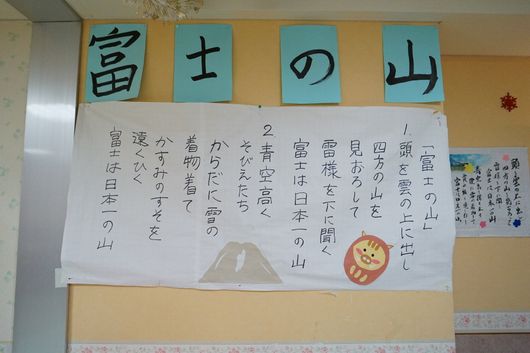 富士の山
「富士の山」
1. 頭を雲の上に出し
四方の山を
見おろして
雷様を下に聞く
富士は日本一の山
2. 青空高く
そびえたち
からだに雪の
着物着て
かすみのすそを
遠くひく
富士は日本一の山